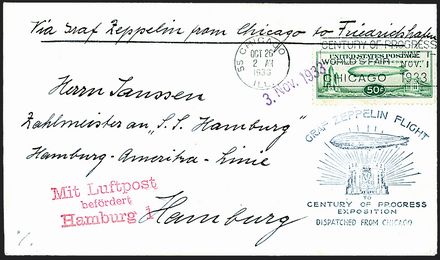 Via Graf Zeppelin from Chicago to Friedrichshafen
55 CHICAGO
OCT 26
2 AM
1933
ILL.
CENTURY OF PROGRESS
WORLD'S FAIR
CHICAGO
NOV. 1
1933
UNITED STATES POSTAGE
50¢
3. Nov. 1933
Herrn Janssen
Zahlmeister an "S.S. Hamburg"
Hamburg-Amerika-Linie
Hamburg
Mit Luftpost
befördert
Hamburg 1
GRAF ZEPPELIN FLIGHT
TO
CENTURY OF PROGRESS
EXPOSITION
DISPATCHED FROM CHICAGO